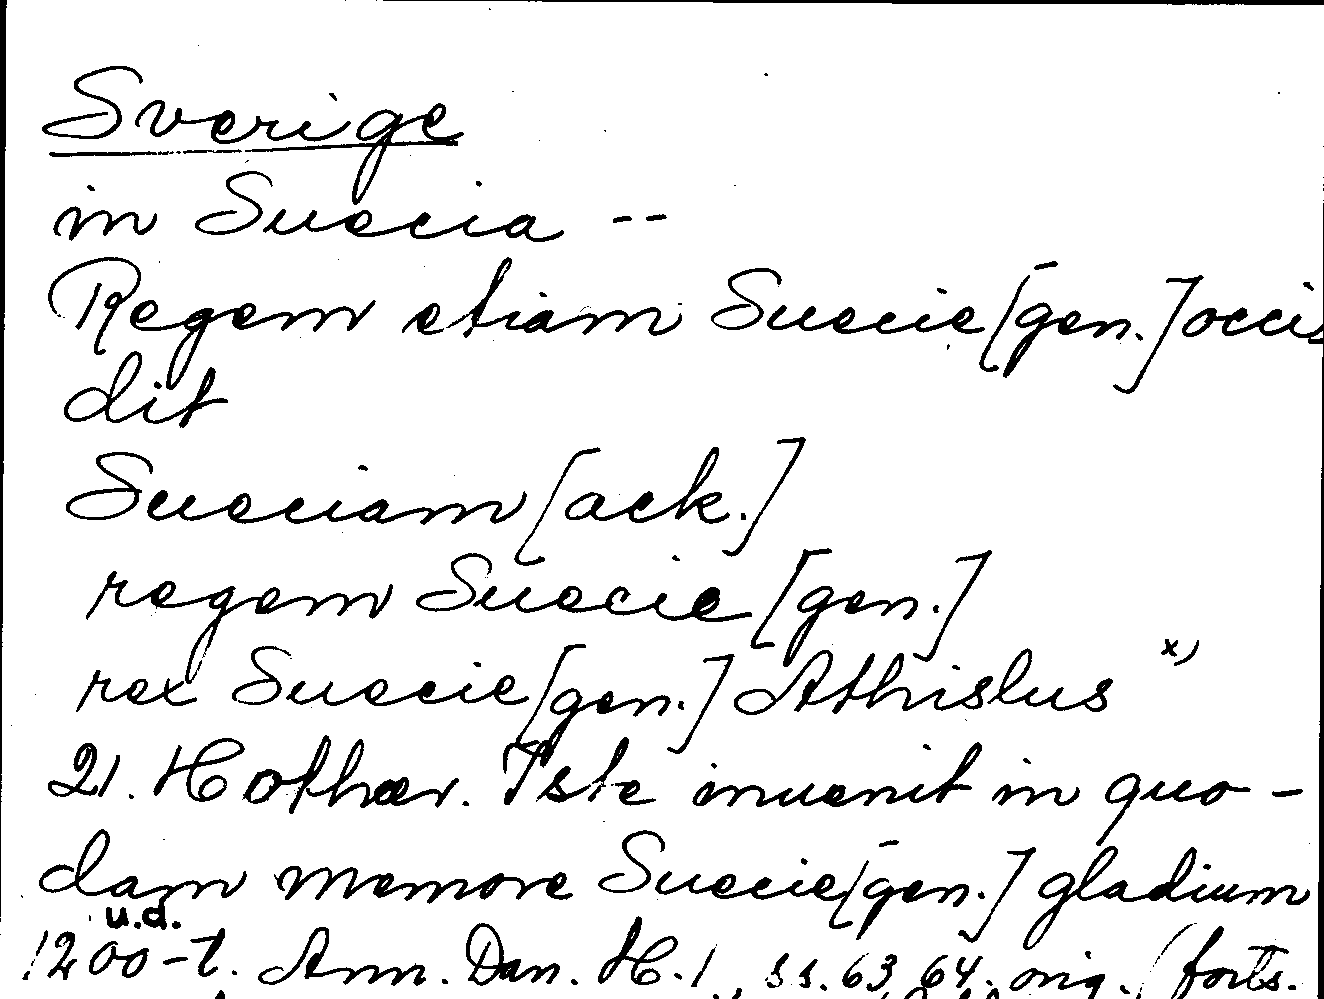 Sverige
in Suecia --
Regem etiam Suecie [gen.] occi
dit
Sueciam [ack.]
regem Suecie [gen.]
rex Suecie [gen.] Athislus x)
21. Hother. Iste inuenit in quo-
dam memore Suecie [gen.] gladium
u.d.
1200-t. Ann. Dan. H. 1, ss. 63, 64. orig. (forts.